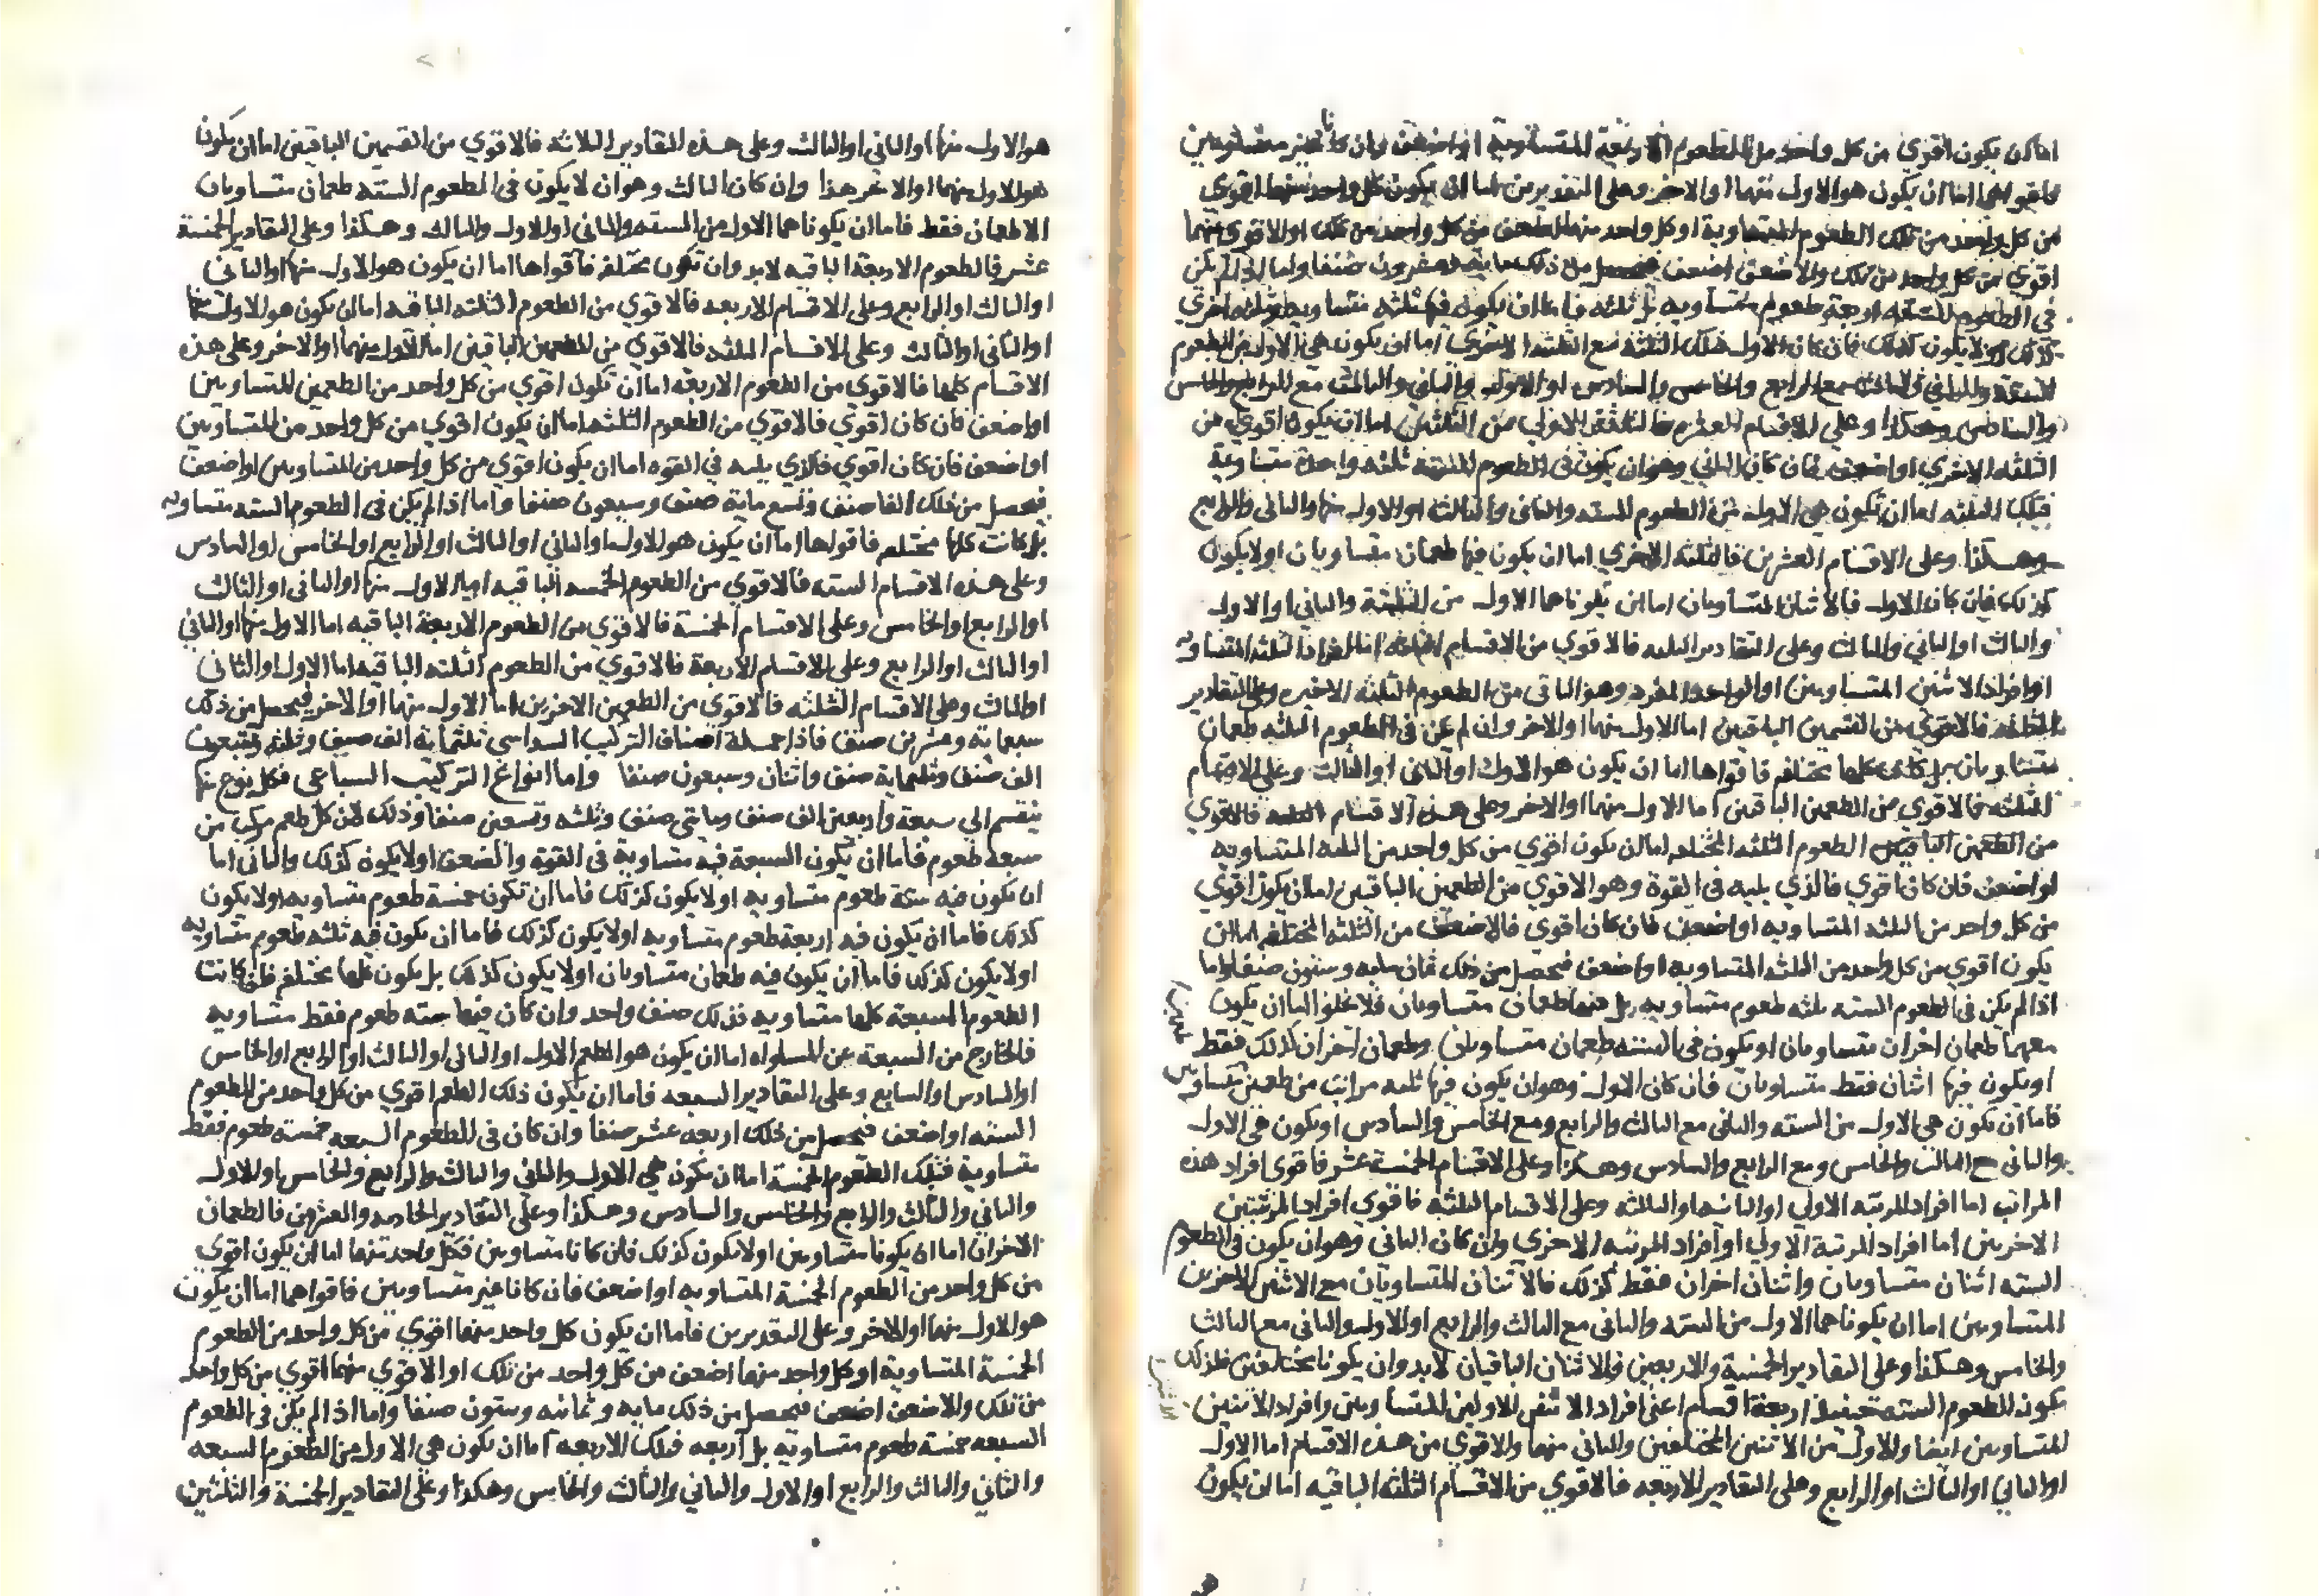 اما ان يكون اقوي من كل واحد من الطعوم الاربعة المتساوية او اضعف وان كانا غير متساويين
فاقواهما اما ان يكون هو الاول منهما او الاخر وعلى التقديرين اما ان يكون كل واحد منهما اقوي
من كل واحد من تلك الطعوم المتساوية او كل واحد منهما اضعف من كل واحد من تلك او الاقوي منهما
اقوي من كل واحد من تلك والاضعف اضعف فيحصل من ذلك مايه وعشرون صنفا واما اذا لم يكن
في الطعوم الستة اربعة طعوم متساويه بل ثلثه فاما ان يكون فيه ثلثه متساويه وثلثه اخري
كذلك او لا يكون كذلك فان كان الاول فتلك الثلثه مع الثلثه الاخري اما ان يكون هي الاول من الطعوم
الستة والثاني والثالث مع الرابع والخامس والسادس او الاول والثاني والثالث مع الرابع والخامس
والسادس وهكذا وعلى الاقسام العشره فالثلثه الاولي من الثلثين اما ان يكون اقوي من
الثلثه الاخري او اضعف فان كان الثاني وهو ان يكون في الطعوم الستة ثلثه واحدة متساوية
فتلك الثلثه اما ان تكون هي الاول من الطعوم الستة والثاني والثالث او الاول منها والثاني والرابع
وهكذا وعلى الاقسام العشرين فالثلثه الاخري اما ان يكون فيها طعمان متساويان او لا يكون
كذلك فان كان الاول فالاثنان المتساويان اما ان يكونا هما الاول من الثلثة والثاني او الاول
والثالث او الثاني والثالث وعلى التقادير الثلثه فالاقوي من الاقسام الثلثه اما افراد الثلثه المتساويه
او افراد الاثنين المتساويين او الواحد المفرد وهو الباقى من الطعوم الثلثه الاخيره وعلى التقادير
الثلثه فالاقوي من القسمين الباقيين اما الاول منهما او الاخر وان لم يكن في الطعوم الثلثه طعمان
متساويان بل كانت كلها مختلفه فاقواها اما ان يكون هو الاول او الثاني او الثالث وعلى الاقسام
الثلثه فالاقوي من الطعمين الباقيين اما الاول منهما او الاخر وعلى هذه الاقسام الستة فالاقوي
من الطعمين الباقيين الطعوم الثلثه المختلفه اما ان يكون اقوي من كل واحد من الثلثه المتساويه
او اضعف فان كان اقوي فالذي يليه في القوة وهو الاقوي من الطعمين الباقيين اما ان يكون اقوي
من كل واحد من الثلثه المتساويه او اضعف فان كان اقوي فالاضعف من الثلثه المختلفه اما ان
يكون اقوي من كل واحد من الثلثه المتساويه او اضعف فيحصل من ذلك ثمان مايه وستون صنفا واما
اذا لم يكن في الطعوم الستة ثلثه طعوم متساويه بل فيها طعمان متساويان فلا يخلو اما ان يكون
معهما طعمان اخران متساويان او يكون في الستة طعمان متساويان وطعمان اخران كذلك فقط
او يكون فيها اثنان فقط متساويان فان كان الاول وهو ان يكون فيها ثلثه مراتب من طعمين متساويين
فاما ان تكون هي الاول من الستة والثاني مع الثالث والرابع ومع الخامس والسادس او يكون هي الاول
والثاني مع الثالث والخامس ومع الرابع والسادس وهكذا وعلى الاقسام الخمسة عشر فاقوى افراد هذه
المراتب اما افراد المرتبه الاولي او الثانيه او الثالثه وعلى الاقسام الثلثه فاقوى افراد المرتبتين
الاخريين اما افراد المرتبة الاولي او افراد المرتبه الاخري وان كان الثاني وهو ان يكون في الطعوم
الستة اثنان متساويان واثنان اخران فقط كذلك فالاثنان المتساويان مع الاثنين الاخرين
المتساويين اما ان يكونا هما الاول من الستة والثاني مع الثالث والرابع او الاول والثاني مع الثالث
والخامس وهكذا وعلى التقادير الخمسة والاربعين فالاثنان الباقيان لابد وان يكونا مختلفين فلذلك
يكون للطعوم الستة حينئذ اربعة اقسام اعنى افراد الاثنين الاولين المتساويين وافراد الاثنين
المتساويين ايضا والاول من الاثنين المختلفين والثاني منهما والاقوي من هذه الاقسام اما الاول
او الثاني او الثالث او الرابع وعلى التقادير الاربعه فالاقوي من الاقسام الثلثه الباقيه اما ان يكون
هو الاول منها او الثاني او الثالث وعلى هذه التقادير الثلاثه فالاقوي من القسمين الباقيين اما ان يكون
هو الاول منهما او الاخر هذا وان كان الثالث وهو ان لا يكون في الطعوم الستة طعمان متساويان
الا طعمان فقط فاما ان يكونا هما الاول من الستة والثاني او الاول والثالث وهكذا وعلى التقادير الخمسة
عشر فالطعوم الاربعة الباقيه لابد وان تكون مختلفه فاقواها اما ان يكون هو الاول منها او الثاني
او الثالث او الرابع وعلى الاقسام الاربعه فالاقوي من الطعوم الثلثه الباقيه اما ان يكون هو الاول منها
او الثاني او الثالث وعلى الاقسام الثلثه فالاقوي من الطعمين الباقيين اما الاول منهما او الاخر وعلى هذه
الاقسام كلها فالاقوي من الطعوم الاربعه اما ان تكون اقوي من كل واحد من الطعمين المتساويين
او اضعف فان كان اقوي فالاقوي من الطعوم الثلثه اما ان يكون اقوي من كل واحد من المتساويين
او اضعف فان كان اقوي فالذي يليه في القوه اما ان يكون اقوي من كل واحد من المتساويين او اضعف
فيحصل من ذلك الفا صنف وتسع ماية صنف وسبعون صنفا واما اذا لم يكن فى الطعوم الستة متساويه
بل كانت كلها مختلفه فاقواها اما ان يكون هو الاول او الثاني او الثالث او الرابع او الخامس او السادس
وعلى هذه الاقسام الستة فالاقوي من الطعوم الخمسه الباقيه اما الاول منها او الثاني او الثالث
او الرابع او الخامس وعلى الاقسام الخمسة فالاقوي من الطعوم الاربعة الباقيه اما الاول منها او الثاني
او الثالث او الرابع وعلى الاقسام الاربعة فالاقوي من الطعوم الثلثه الباقيه اما الاول او الثاني
او الثالث وعلى الاقسام الثلثه فالاقوي من الطعمين الاخرين اما الاول منهما او الاخر فيحصل من ذلك
سبعمايه وعشرين صنف فاذا جملة اصناف التركيب السداسي ثلثماية الف صنف وثلثه وتسعون
الف صنف وثلثماية صنف واثنان وسبعون صنفا واما انواع التركيب السباعي فكل نوع منها
ينقسم الى سبعة واربعين الف صنف ومايتى صنف وثلثه وتسعين صنفا وذلك لان كل طعم مركب من
سبعة طعوم فاما ان يكون السبعة فيه متساوية فى القوة والضعف او لا يكون كذلك والثاني اما
ان يكون فيه ستة طعوم متساويه او لا يكون كذلك فاما ان تكون خمسة طعوم متساويه او لا يكون
كذلك فاما ان يكون فيه اربعة طعوم متساويه او لا يكون كذلك فاما ان يكون فيه ثلثه طعوم متساويه
او لا يكون كذلك فاما ان يكون فيه طعمان متساويان او لا يكون كذلك بل يكون كلها مختلفه فان كانت
الطعوم السبعة كلها متساويه فذلك صنف واحد وان كان فيها ستة طعوم فقط متساويه
فالخارج من السبعة عن المساواه اما ان يكون هو الطعم الاول او الثاني او الثالث او الرابع او الخامس
او السادس او السابع وعلى التقادير السبعه فاما ان يكون ذلك الطعم اقوي من كل واحد من الطعوم
الستة او اضعف فيحصل من ذلك اربعه عشر صنفا وان كان فى الطعوم السبعه خمسة طعوم فقط
متساوية فتلك الطعوم الخمسة اما ان تكون هي الاول والثاني والثالث والرابع والخامس او الاول
والثاني والثالث والرابع والسادس وهكذا وعلى التقادير الحاديه والعشرين فالطعمان
الاخران اما ان يكونا متساويين او لا يكون كذلك فان كانا متساويين فكل واحد منهما اما ان يكون اقوي
من كل واحد من الطعوم الخمسة المتساويه او اضعف فان كانا غير متساويين فاقواهما اما ان يكون
هو الاول منهما او الاخر وعلى التقديرين فاما ان يكون كل واحد منهما اقوي من كل واحد من الطعوم
الخمسة المتساوية او كل واحد منهما اضعف من كل واحد من تلك او الاقوي منهما اقوي من كل واحد
من تلك والاضعف اضعف فيحصل من ذلك مايه وثمانيه وستون صنفا واما اذا لم يكن فى الطعوم
السبعه خمسة طعوم متساوية بل اربعه فتلك الاربعه اما ان يكون هي الاول من الطعوم السبعه
والثاني والثالث والرابع او الاول والثاني والثالث والخامس وهكذا وعلى التقادير الخمسة والثلثين